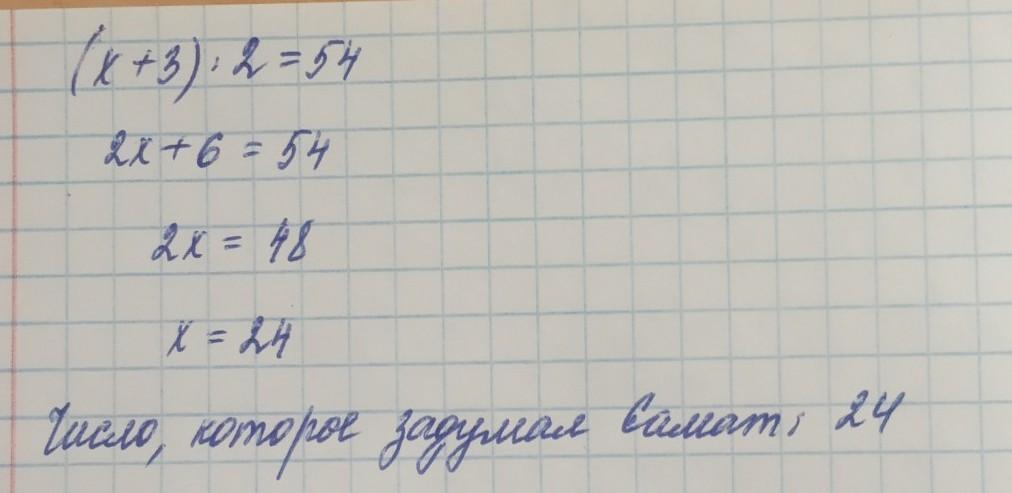 (x+3)·2=54
2x+6=54
2x=48
x=24
Число, которое задумал Самат: 24